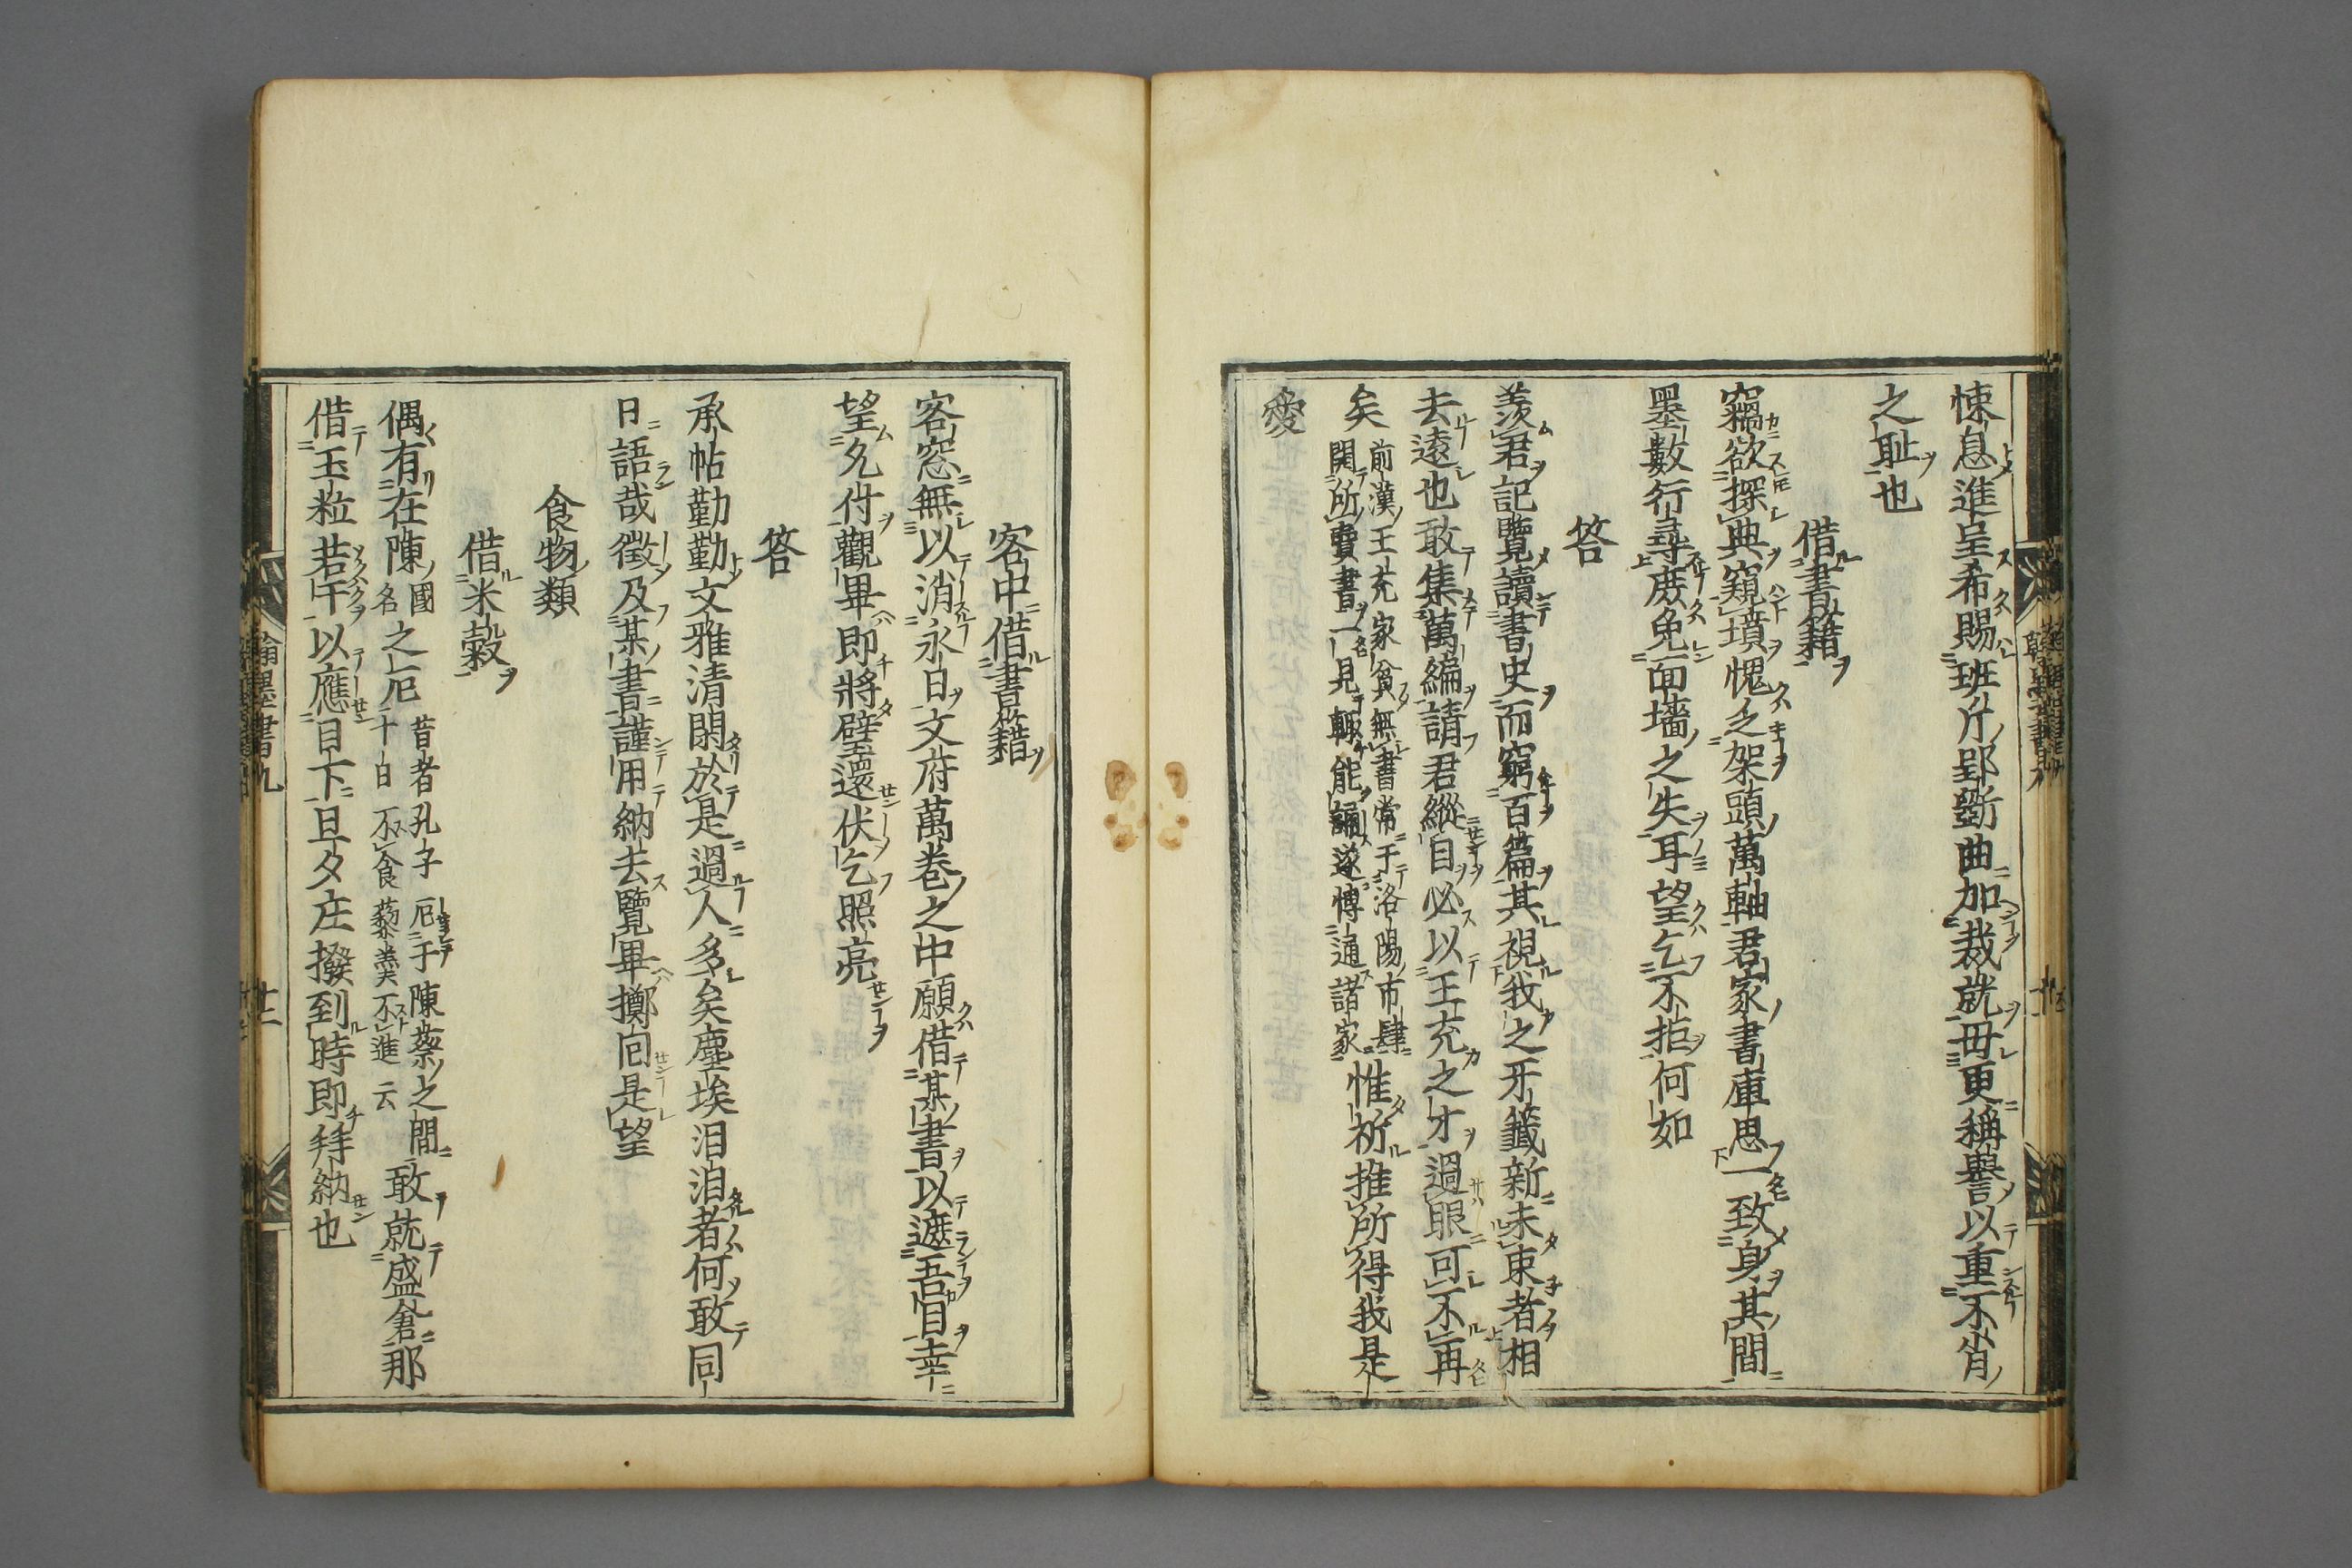 悚息進呈希賜班斤郢斲曲加裁就毋更稱譽以重不肖
之耻也
借書籍
竊欲探典窺墳愧乏架頭萬軸君家書庫思一致身其間
墨數行尋庻免面墻之失耳望乞不拒何如
答
羨君記覽讀書史而窮百篇其視我之牙籤新未束者相
去遠也敢集萬編請君縱目必以王充之才過眼可不再
矣
前漢王充家貧無書常于洛陽市肆
閱所賣書一見輒能誦遂博通諸家
惟祈推所得我是
愛
客中借書籍
客窓無以消永日文府萬巻之中願借某書以遮吾目幸
望允付觀畢即將璧還伏乞照亮
答
承帖勤勤文雅清閑於是過人多矣塵埃汨汨者何敢同
日語哉徵及某書謹用納去覽畢擲囘是望
食物類
借米穀
偶有在陳
國
名
之厄
昔者孔子厄于陳蔡之間
十日不食藜羮不進云
敢就盛倉那
借玉粒若干以應目下旦夕庄撥到時即拜納也
翰墨書九
廿二